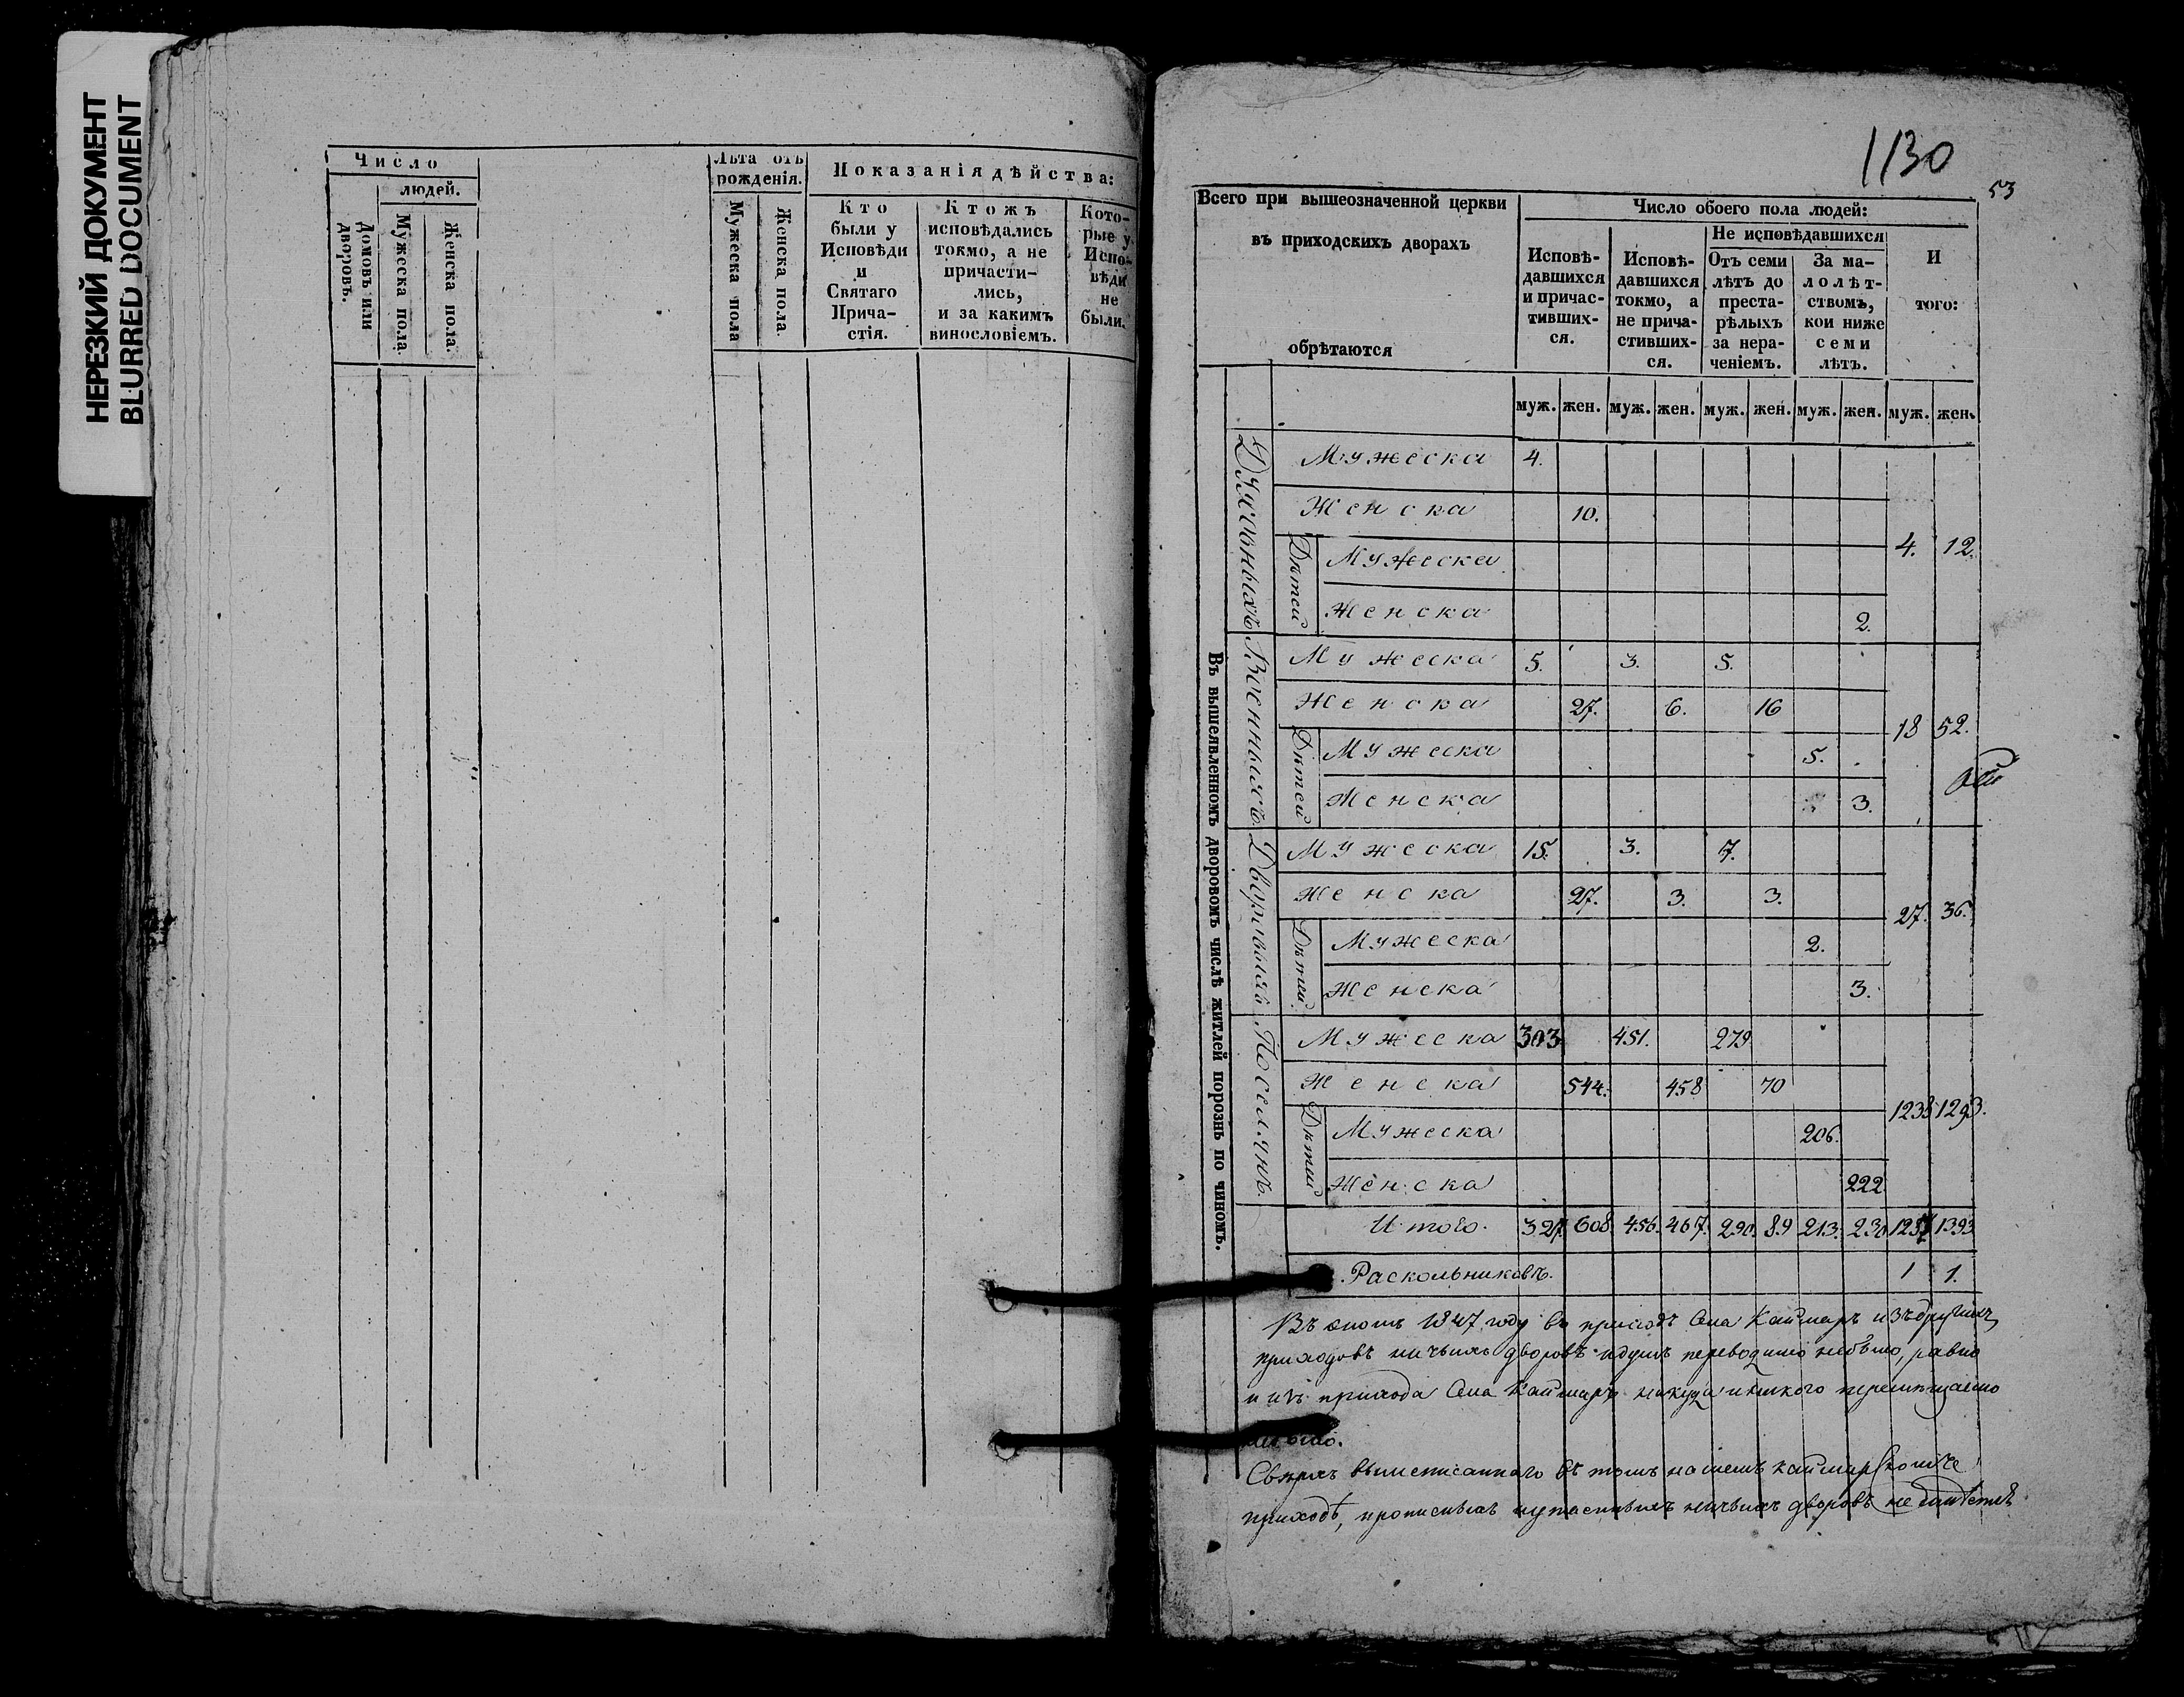 НЕРЕЗКИЙ ДОКУМЕНТ
BLURRED DOCUMENT
Число
людей.
Домовъ или дворовъ.
Мужеска пола.
Женска пола.
Лѣта отъ рожденія.
Мужеска пола
Женска пола.
Показанія дѣйства:
Кто были у Исповѣди и Святаго Прича-стія.
Ктожъ исповѣдались токмо, а не причасти-лись, и за какимъ винословіемъ.
Кото-рые у Испо-вѣди не были.
1130
53
Всего при вышеозначенной церкви
въ приходскихъ дворахъ
обрѣтаются
Число обоего пола людей:
Исповѣ-давшихся и причас-тивших-ся.
Исповѣ-давшихся токмо, а не прича-стивших-ся.
Не исповѣдавшихся
Отъ семи лѣтъ до преста-рѣлыхъ за нера-ченіемъ.
За ма-лолѣт-ствомъ, кои ниже семи лѣтъ.
И того:
муж. жен. муж. жен. муж. жен. муж. жен. муж. жен.
Въ вышеявленномъ дворовомъ числѣ житлей порознь по чиномъ.
Духовныхъ
Мужеска 4.
Женска 10.
4. 12.
Дѣтей
Мужеска
Женска 2.
Военныхъ.
Мужеска 5. 3. 5.
Женска 27. 6. 16
18 52.
Дѣтей
Мужеска 5.
Женска 3.
Дворовыхъ
Мужеска 15. 3. 7.
Женска 27. 3. 3.
27. 36.
Дѣтей
Мужеска 2.
Женска 3.
Поселянъ.
Мужеска 303 451. 279
Женска 544. 458 70
1238 1293.
Дѣтей
Мужеска 206.
Женска 222
Итого. 327. 608 456. 467. 290. 89 213. 230 1287 1393
Раскольниковъ. 1 1.
Въ 1847 году въ приходъ Села Каймаръ изъ другихъ
приходовъ ничьихъ дворовъ и душъ переводимо небыло, равно
и изъ прихода Села Каймаръ никуда и никого
небыло.
Сверхъ вышеписаннаго въ томъ нашемъ
приходѣ, дворовъ не имѣется